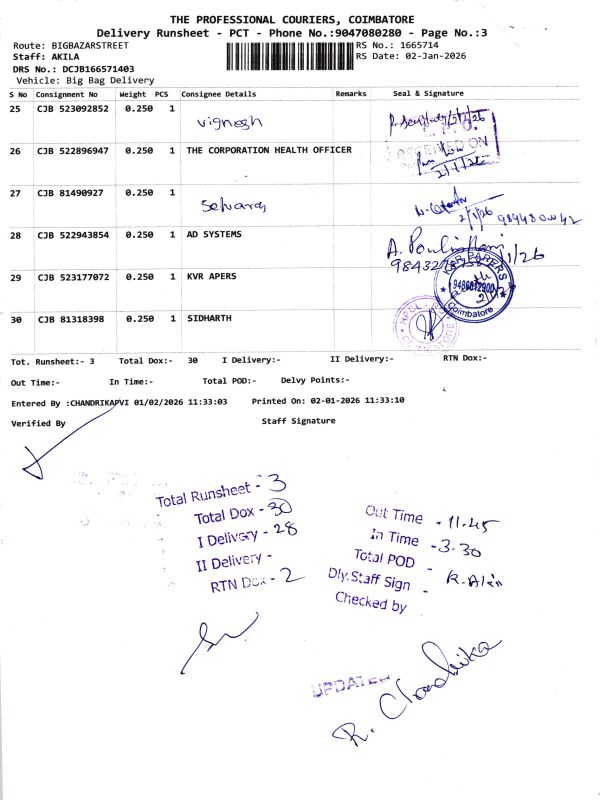 THE PROFESSIONAL COURIERS, COIMBATORE
Delivery Runsheet - PCT - Phone No.:9047080280 - Page No.:3
Route: BIGBAZARSTREET
RS No.: 1665714
Staff: AKILA
RS Date: 02-Jan-2026
DRS No.: DCJB166571403
Vehicle: Big Bag Delivery
S No Consignment No Weight PCS Consignee Details Remarks Seal & Signature
25 CJB 523092852 0.250 1 Vignesh
26 CJB 522896947 0.250 1 THE CORPORATION HEALTH OFFICER
27 CJB 81490927 0.250 1 Selvaraj
2/1/26
28 CJB 522943854 0.250 1 AD SYSTEMS
29 CJB 523177072 0.250 1 KVR APERS
Coimbatore
30 CJB 81318398 0.250 1 SIDHARTH
Tot. Runsheet:- 3 Total Dox:- 30 I Delivery:- II Delivery:- RTN Dox:-
Out Time:- In Time:- Total POD:- Delvy Points:-
Entered By :CHANDRIKAPVI 01/02/2026 11:33:03 Printed On: 02-01-2026 11:33:10
Verified By Staff Signature
Total Runsheet - 3
Total Dox - 30
I Delivery - 28
II Delivery -
RTN Dox - 2
Out Time - 11.45
In Time - 3.30
Total POD -
Dly.Staff Sign -
Checked by
UPDATED
R. Chandrika